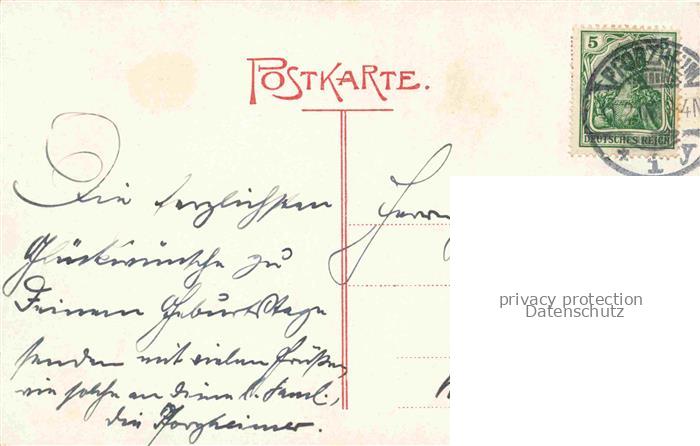 POSTKARTE.
5
DEUTSCHES REICH
PFORZHEIM
* 1 y
Die herzlichsten
Glückwünsche zu
Deinem Geburtstage
senden mit vielen Grüßen,
wie solche an deine l. Faml.,
die Pforzheimer.
Herrn
privacy protection
Datenschutz